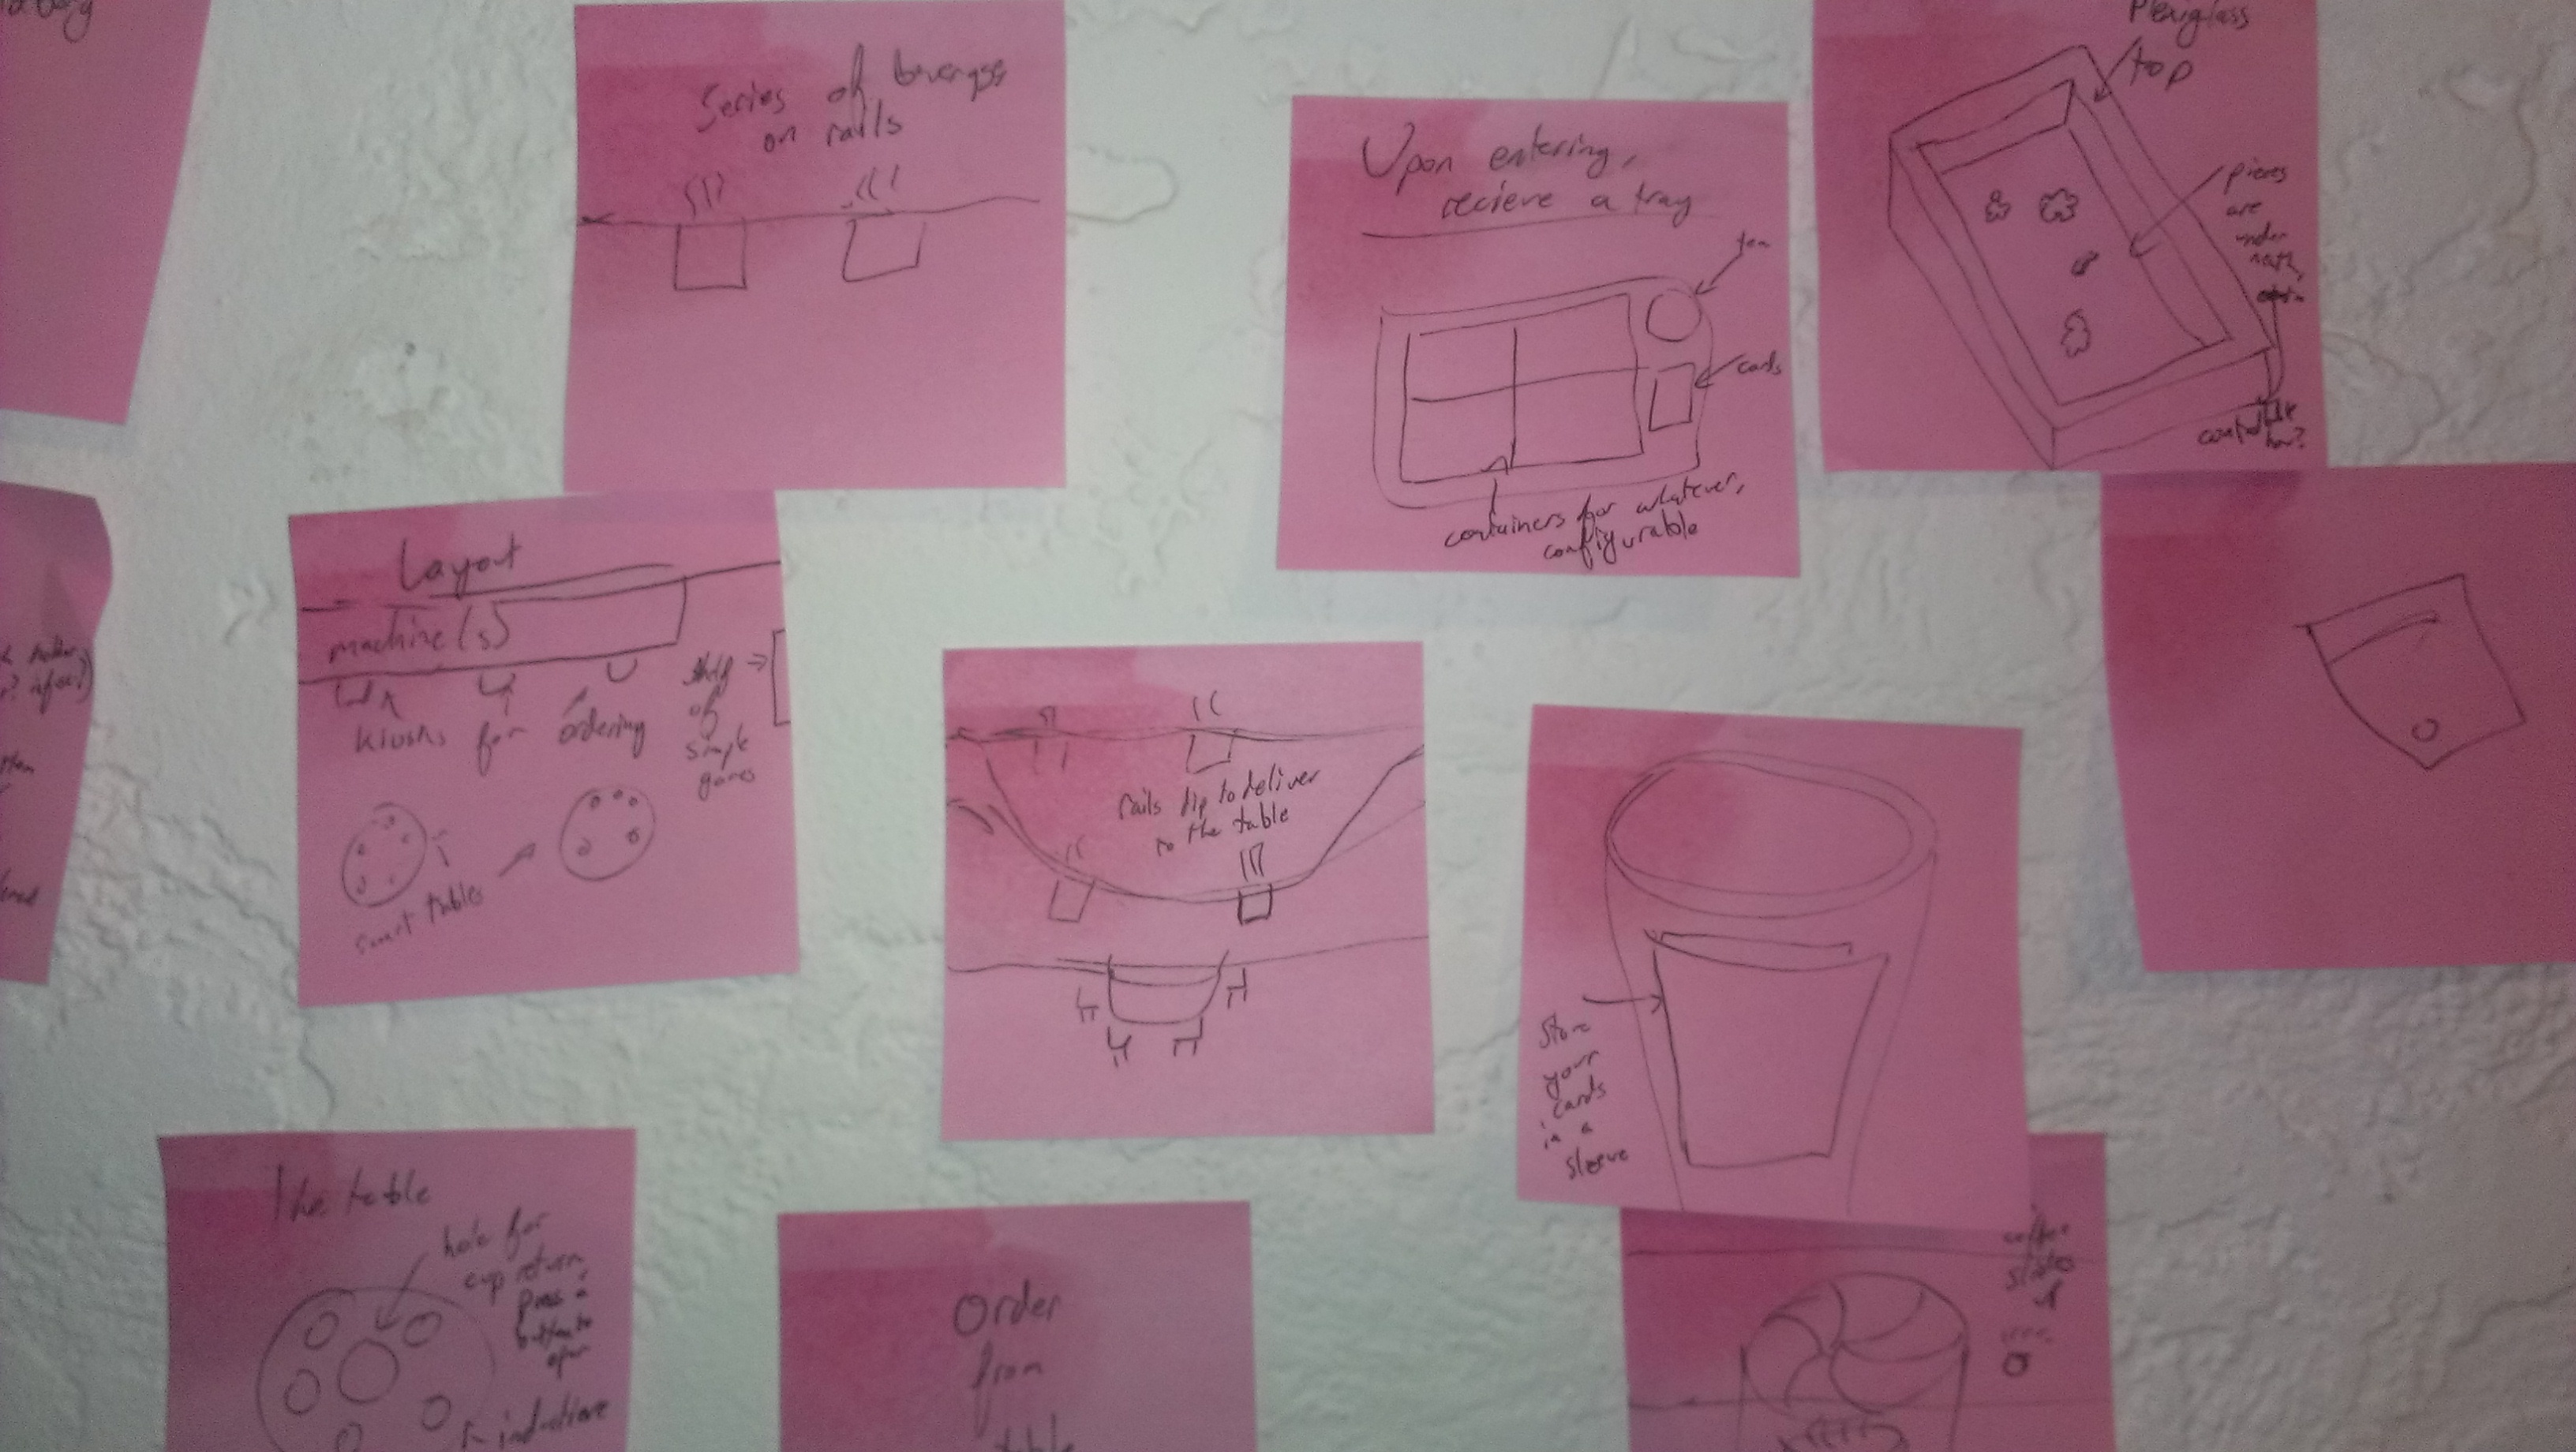 Series of beverages
on rails
Upon entering,
recieve a tray
tea
cards
containers for whatever,
configurable
Plexiglass
top
pieces
are
under
neath,
how?
Layout
machine(s)
kiosks for ordering
shelf
of
simple
games
smart tables
rails dip to deliver
to the table
Store
your
cards
in a
sleeve
The table
hole for
cup return,
press a
button to
open
inductive
Order
from
table
coffee
slides